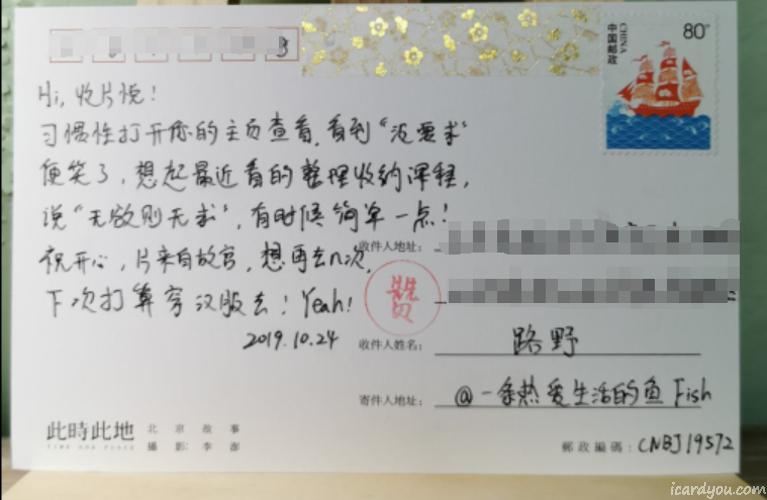 80分
CHINA
中国邮政
Hi, 收片悦!
习惯性打开你的主页查看,看到"没要求"
便笑了,想起最近看的整理收纳课程,
说"无欲则无求",有时候简单一点!
祝开心,片来自故宫,想再去n次,
下次打算穿汉服去!Yeah!
2019.10.24
收件人地址:
收件人姓名: 路野
寄件人地址: @一条热爱生活的鱼 Fish
此時此地
TIME AND PLACE
北京故事
攝影:李澎
郵政編碼: CNBJ19572
icardyou.com